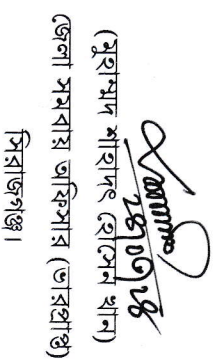 ২৪/০৬/২৪
(মুহাম্মদ শাহাদৎ হোসেন খান)
জেলা সমবায় অফিসার (ভারপ্রাপ্ত)
সিরাজগঞ্জ।